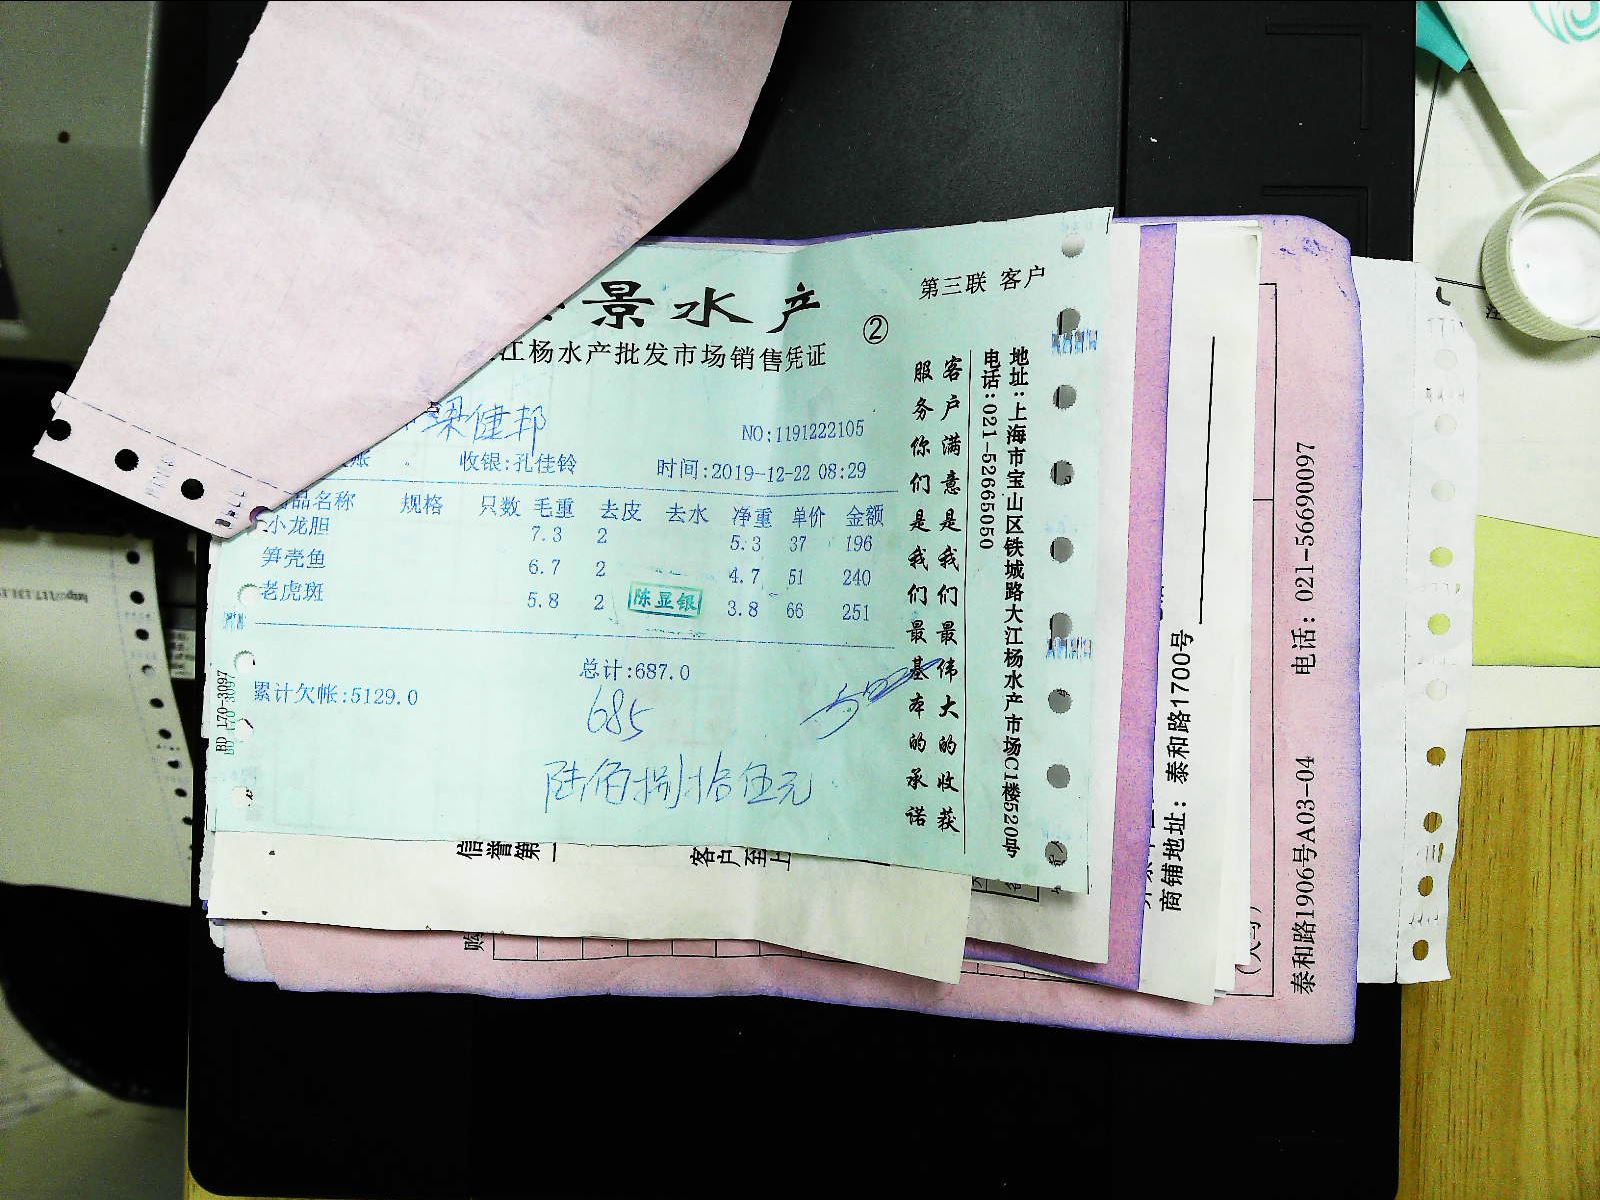 景水产
第三联 客户
②
江杨水产批发市场销售凭证
梁健邦
NO:1191222105
账 。 收银:孔佳铃 时间:2019-12-22 08:29
品名称 规格 只数 毛重 去皮 去水 净重 单价 金额
小龙胆 7.3 2 5.3 37 196
笋壳鱼 6.7 2 4.7 51 240
老虎斑 5.8 2 3.8 66 251
陈显银
总计:687.0
累计欠帐:5129.0
685
陆佰捌拾伍元
BD 170-3097
客户满意是我们最伟大的收获
服务你们是我们最基本的承诺
地址:上海市宝山区铁城路大江杨水产市场C1楼520号
电话:021-52665050
信誉第一
客户至上
购
商铺地址: 泰和路1700号
泰和路1906号A03-04 电话: 021-56690097